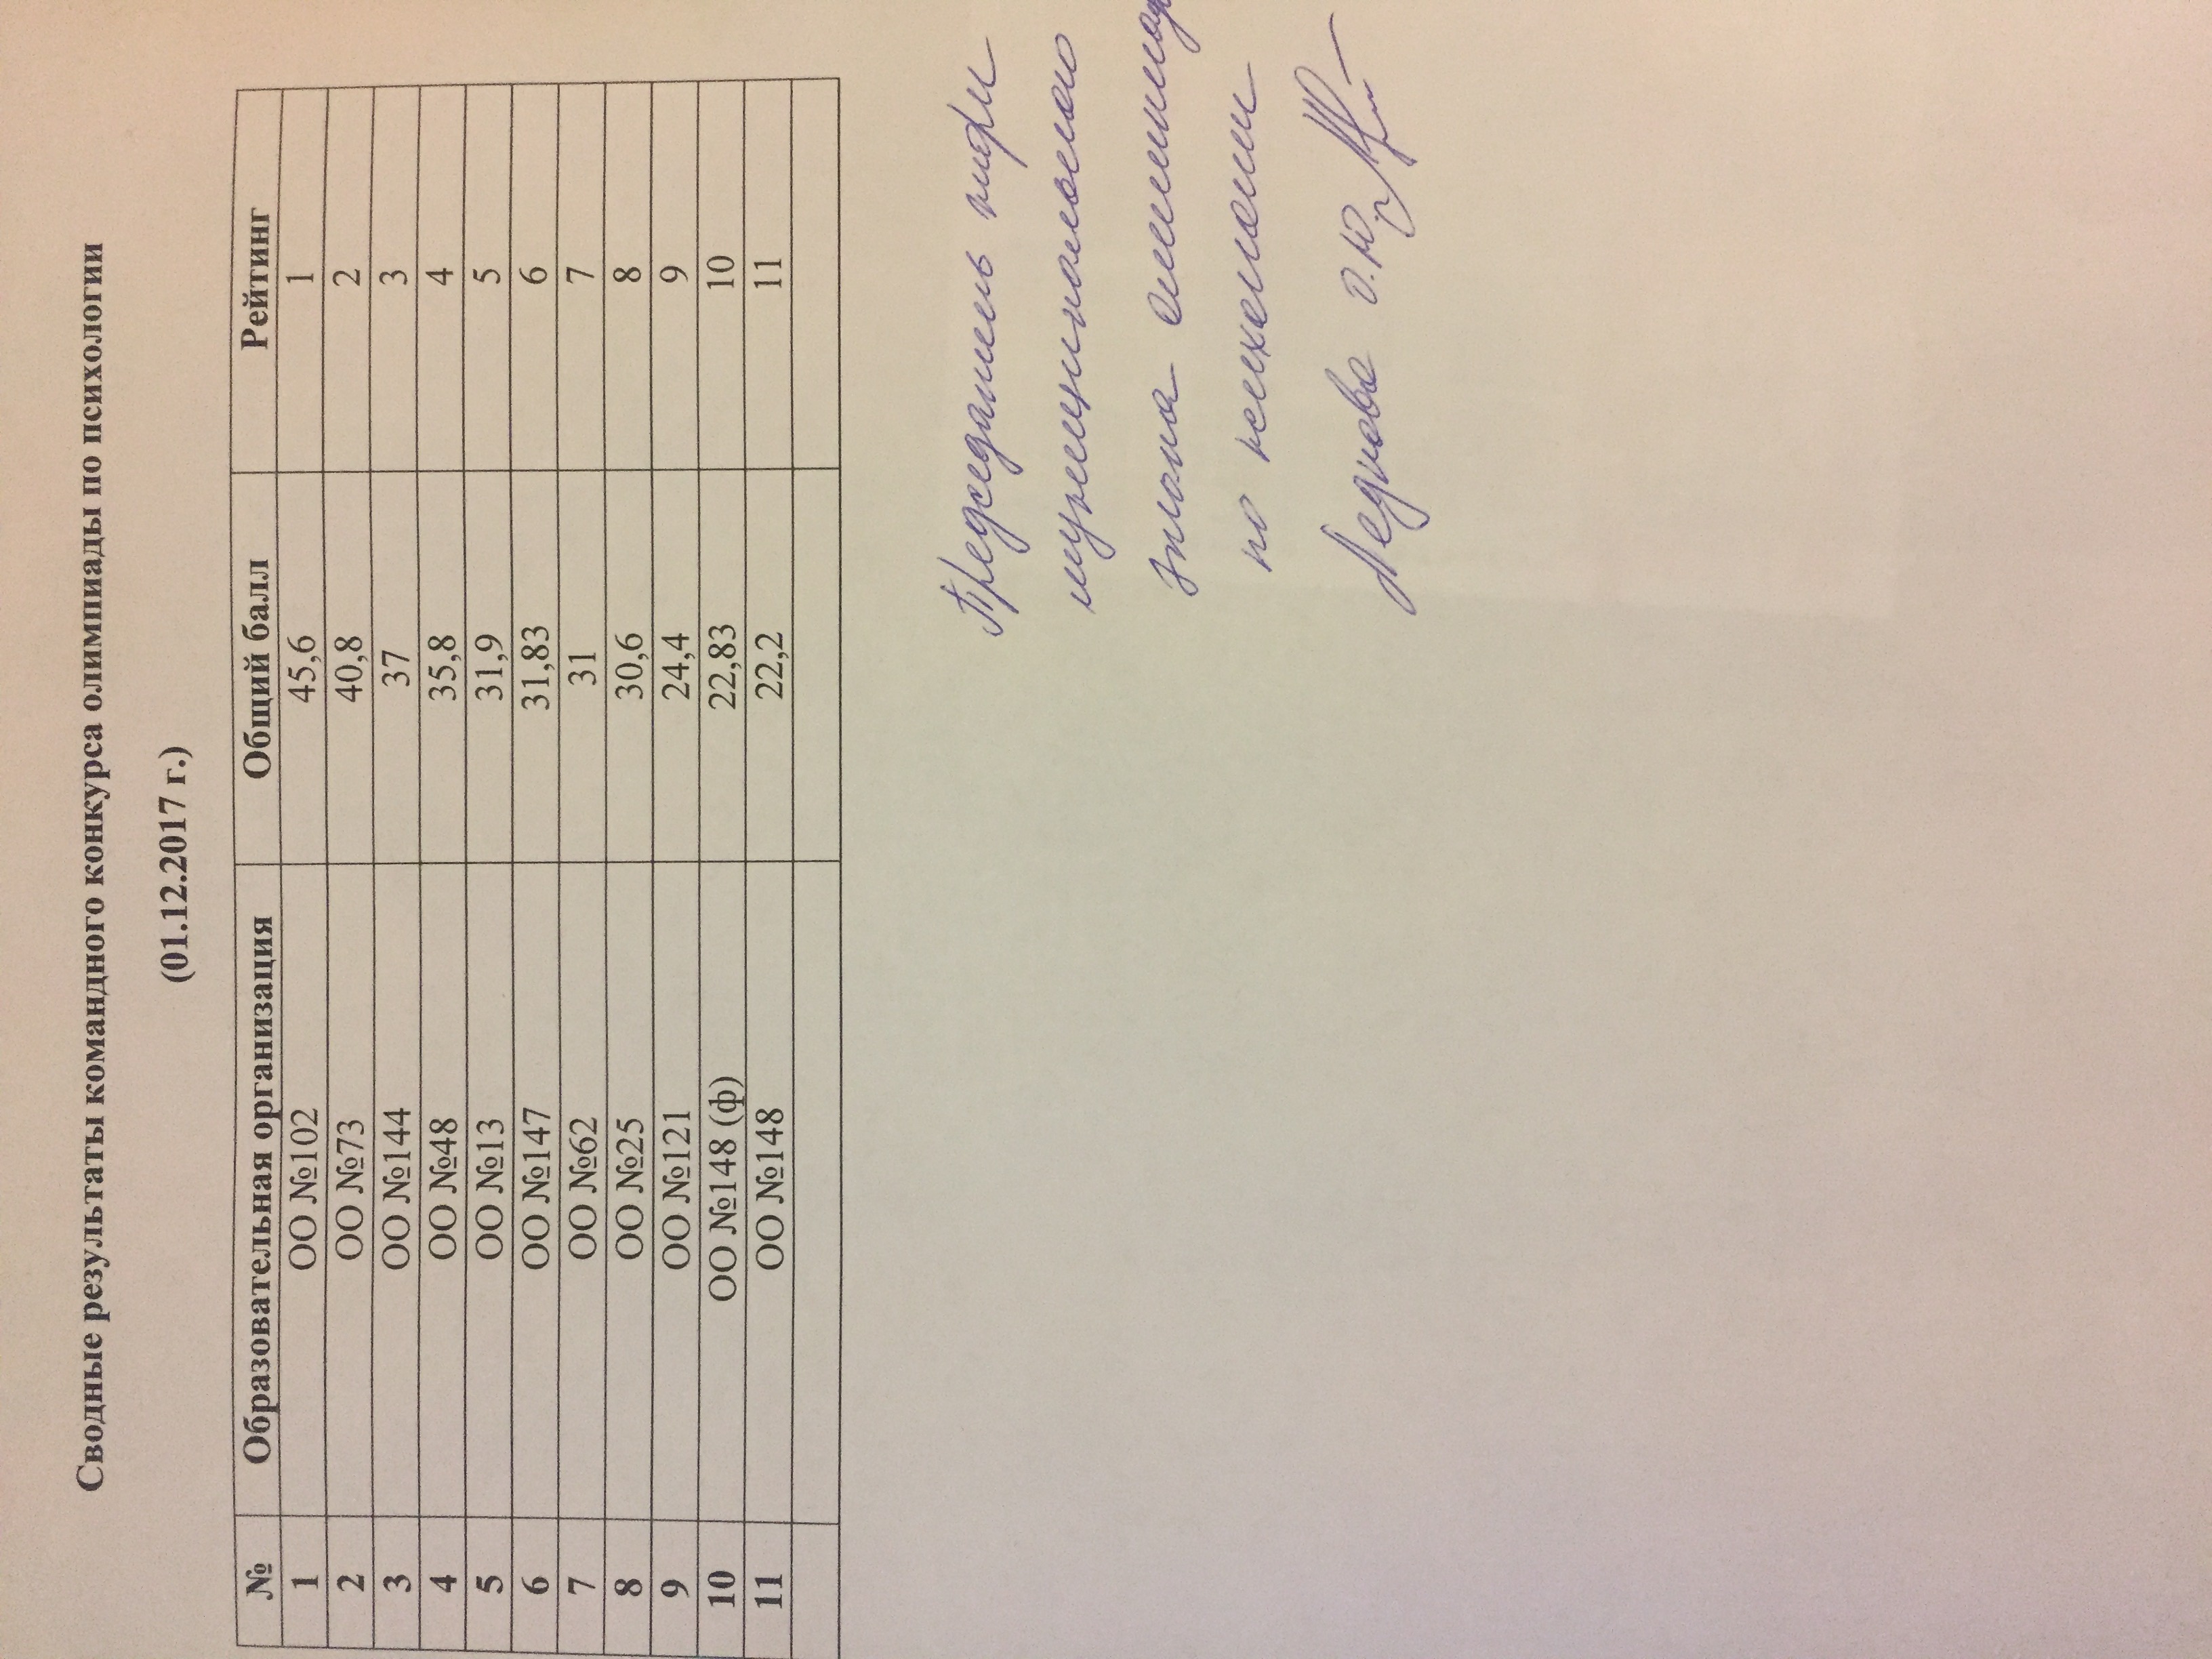 Сводные результаты командного конкурса олимпиады по психологии
(01.12.2017 г.)
№ Образовательная организация Общий балл Рейтинг
1 ОО №102 45,6 1
2 ОО №73 40,8 2
3 ОО №144 37 3
4 ОО №48 35,8 4
5 ОО №13 31,9 5
6 ОО №147 31,83 6
7 ОО №62 31 7
8 ОО №25 30,6 8
9 ОО №121 24,4 9
10 ОО №148 (ф) 22,83 10
11 ОО №148 22,2 11
Председатель жюри
муниципального
этапа
по психологии
О.Ю.